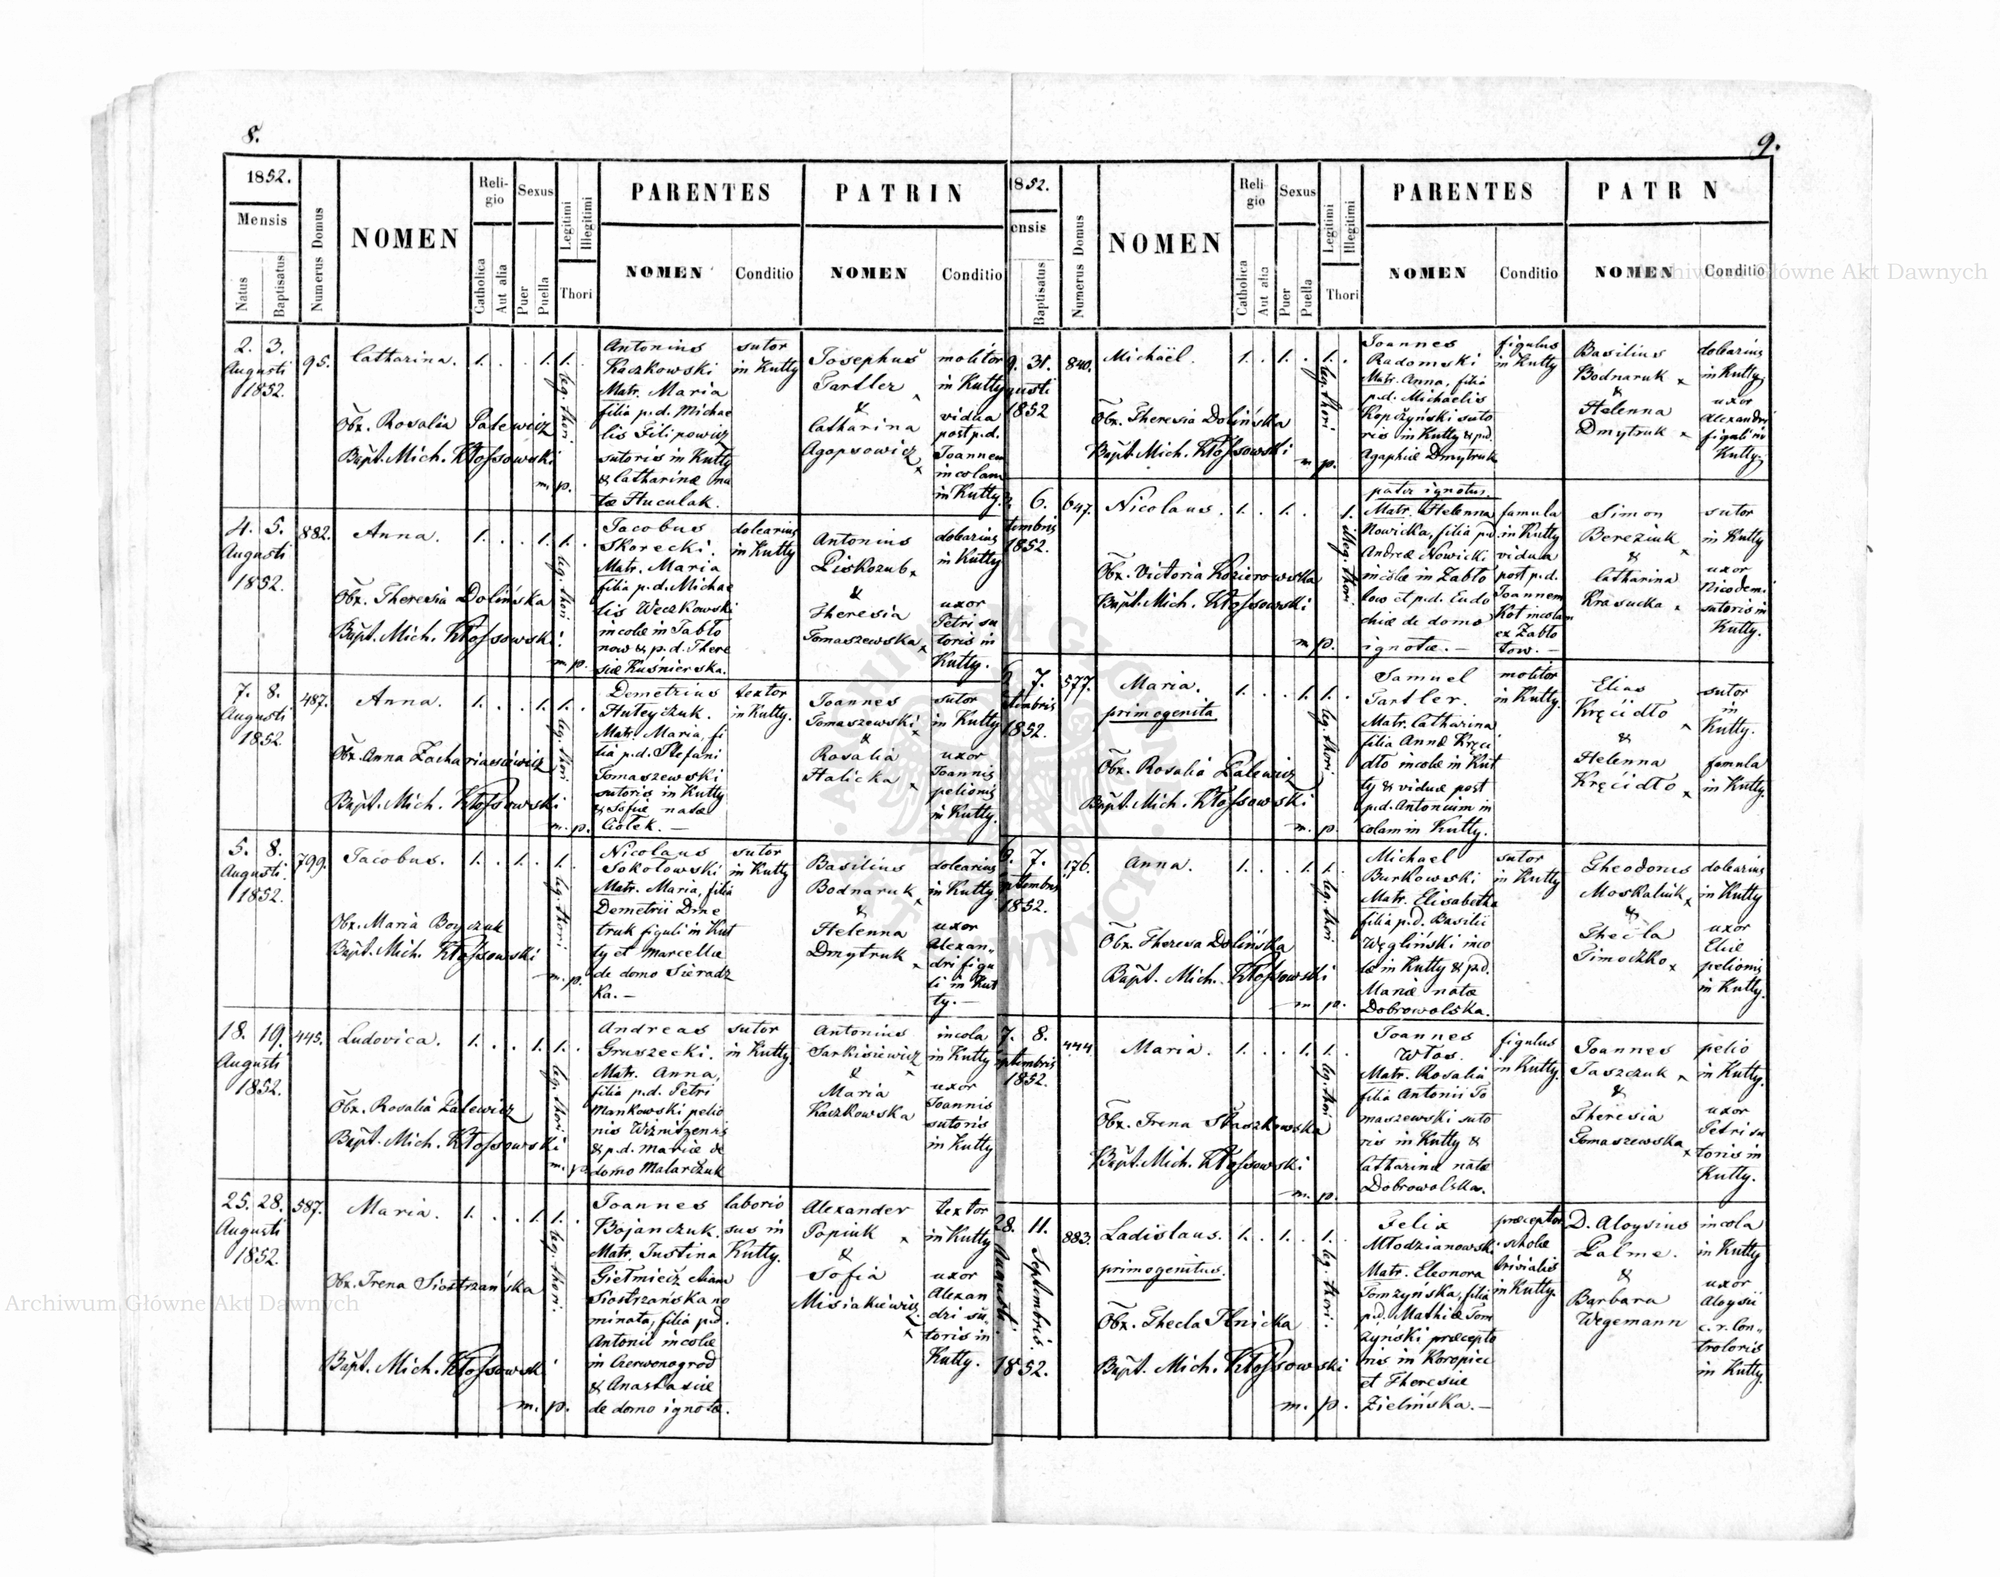 8.
1852.
Mensis
Natus
Baptisatus
Numerus Domus
NOMEN
Religio
Catholica
Aut alia
Sexus
Puer
Puella
Legitimi
Illegitimi
Thori
PARENTES
NOMEN
Conditio
PATRIN
NOMEN
Conditio
2. 3.
Augusti
1852.
95.
Catharina.
1. . . 1. 1. .
leg. thori
Obx. Rosalia Palewicz
Bapt. Mich. Kłossowski
m. p.
Antonius
Kaczkowski
Matr. Maria
filia p.d. Michae
lis Filipowicz
sutoris in Kutty
& Catharinæ na
tæ Huculak.
sutor
in Kutty
Josephus
Tartler
&
Catharina
Agopsowicz
molitor
in Kutty
vidua
post p.d.
Joannem
incolam
in Kutty.
4. 5.
Augusti
1852.
882.
Anna.
1. . . 1. 1. .
leg. thori
Obx. Theresia Dolińska
Bapt. Mich. Kłossowski
m. p.
Jacobus
Skorecki.
Matr. Maria
filia p.d. Michae
lis Weczkowski
incolæ in Jabło
now & p.d. There
siæ Kuśnierska.
dolearius
in Kutty
Antonius
Piskozub
&
Theresia
Tomaszewska
dolearius
in Kutty
uxor
Petri su
toris in
Kutty.
7. 8.
Augusti
1852.
487.
Anna.
1. . . 1. 1. .
leg. thori
Obx. Anna Zachariasiewicz
Bapt. Mich. Kłossowski
m. p.
Demetrius
Huteyczuk.
Matr. Maria, fi
lia p.d. Stefani
Tomaszewski
sutoris in Kutty
& Sofiæ natæ
Ciołek. —
textor
in Kutty.
Joannes
Tomaszewski
&
Rosalia
Halicka
sutor
in Kutty.
uxor
Joannis
pelionis
in Kutty.
5. 8.
Augusti
1852.
799.
Jacobus.
1. . 1. . 1. .
leg. thori
Obx. Maria Boyczuk
Bapt. Mich. Kłossowski
m. p.
Nicolaus
Sokołowski
Matr. Maria, filia
Demetrii Dme
truk figuli in Kut
ty et Marcellæ
de domo Sieradz
ka. —
sutor
in Kutty
Basilius
Bodnaruk
&
Helenna
Dmytruk
dolearius
in Kutty.
uxor
Alexan-
dri figu
li in Kut
ty. —
18. 19.
Augusti
1852.
445.
Ludovica.
1. . . 1. 1. .
leg. thori
Obx. Rosalia Palewicz
Bapt. Mich. Kłossowski
m. p.
Andreas
Gruszecki.
Matr. Anna,
filia p.d. Petri
Mankowski pelio
nis Wiznitzensis
& p.d. Mariæ de
domo Malarczuk
sutor
in Kutty.
Antonius
Sarkisiewicz
&
Maria
Kaczkowska
incola
in Kutty
uxor
Joannis
sutoris
in Kutty
25. 28.
Augusti
1852.
587.
Maria.
1. . . 1. 1. .
leg. thori.
Obx. Irena Siostrzańska
Bapt. Mich. Kłossowski
m. p.
Joannes
Bojanczuk.
Matr. Justina
Siostrzańska no
minata, filia p.d.
Antonii incolæ
in Czerwonogrod
& Anastasiæ
de domo ignotæ.
laborio
sus in
Kutty.
Alexander
Popiuk
&
Sofia
Misiakiewicz
textor
in Kutty
uxor
Alexan
dri su-
toris in
Kutty.
9.
1852.
ensis
Baptisatus
Numerus Domus
NOMEN
Religio
Catholica
Aut alia
Sexus
Puer
Puella
Legitimi
Illegitimi
Thori
PARENTES
NOMEN
Conditio
PATR N
NOMEN
Conditio
9. 31.
gusti
1852
840.
Michäel.
1. . 1. . 1. .
leg. thori
Obx. Theresia Dolińska
Bapt. Mich. Kłossowski
m. p.
Joannes
Radomski
Matr. Anna, filia
p.d. Michaelis
Kopczyński suto
ris in Kutty & p.d.
Agaphiæ Dmytruk
figulus
in Kutty
Basilius
Bodnaruk
&
Helenna
Dmytruk
dolearius
in Kutty
uxor
Alexandri
figuli in
Kutty
6.
tembris
1852.
647.
Nicolaus.
1. . 1. . 1.
illeg. thori
Obx. Victoria Kozierowska
Bapt. Mich. Kłossowski
m. p.
pater ignotus.
Matr. Helenna
Nowicka, filia p.d
Andreæ Nowicki
incolæ in Zabło
tow et p.d. Eudo
chiæ de domo
ignotæ. —
famula
in Kutty
vidua
post p.d.
Joannem
Kot incolam
ex Zabło
tow. —
Simon
Bereziuk
&
Catharina
Krasucka
sutor
in Kutty
uxor
Nicodemi
sutoris in
Kutty.
7.
1852.
577.
Maria.
primogenita
1. . . 1. 1. .
leg. thori
Obx. Rosalia Palewicz
Bapt. Mich. Kłossowski
m. p.
Samuel
Tartler.
Matr. Catharina
filia Annæ Kręci
dło incolæ in Kut
ty & viduæ post
p.d. Antonium in
colam in Kutty.
molitor
in Kutty.
Elias
Kręcidło
&
Helenna
Kręcidło
sutor
in
Kutty.
famula
in Kutty.
6. 7.
ptembris
1852.
176.
Anna.
1. . . 1. 1. .
leg. thori
Obx. Theresa Dolińska
Bapt. Mich. Kłossowski
m. p.
Michael
Burkowski
Matr. Elisabetha
filia p.d. Basilii
Węgliński inco
læ in Kutty & p.d.
Mariæ natæ
Dobrowolska.
sutor
in Kutty
Theodorus
Moskaluk
&
Thecla
Timoczko
dolearius
in Kutty
uxor
Eliæ
pelionis
in Kutty.
7. 8.
ptembris
1852.
444.
Maria.
1. . . 1. 1. .
leg. thori
Obx. Irena Staszkowska
Bapt. Mich. Kłossowski
m. p.
Joannes
Włos.
Matr. Rosalia
filia Antonii To
maszewski suto
ris in Kutty &
Catharinæ natæ
Dobrowolska.
figulus
in Kutty.
Joannes
Taszczuk
&
Theresia
Tomaszewska
pelio
in Kutty.
uxor
Petri su
toris in
Kutty.
28. 11.
Augusti.
Septembris.
1852.
883.
Ladislaus.
primogenitus.
1. . 1. . 1. .
leg. thori.
Obx. Thecla Ilnicka
Bapt. Mich. Kłossowski
m. p.
Felix
Młodzianowski
Matr. Eleonora
Tomzyńska, filia
p.d. Mathiæ Tom
zyński præcepto
ris in Koropiec
et Theresiæ
Zielińska. —
præceptor
scholæ
trivialis
in Kutty.
D. Aloysius
Palme.
&
Barbara
Wegemann
incola
in Kutty
uxor
Aloysii
c. r. Con-
troloris
in Kutty.
Archiwum Główne Akt Dawnych
Archiwum Główne Akt Dawnych